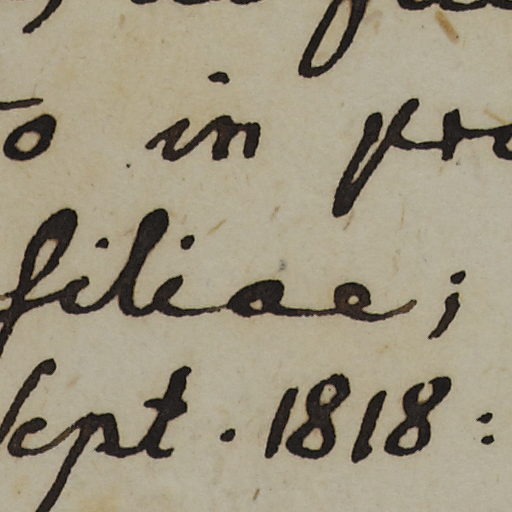 to in pro
filiae;
Sept. 1818: